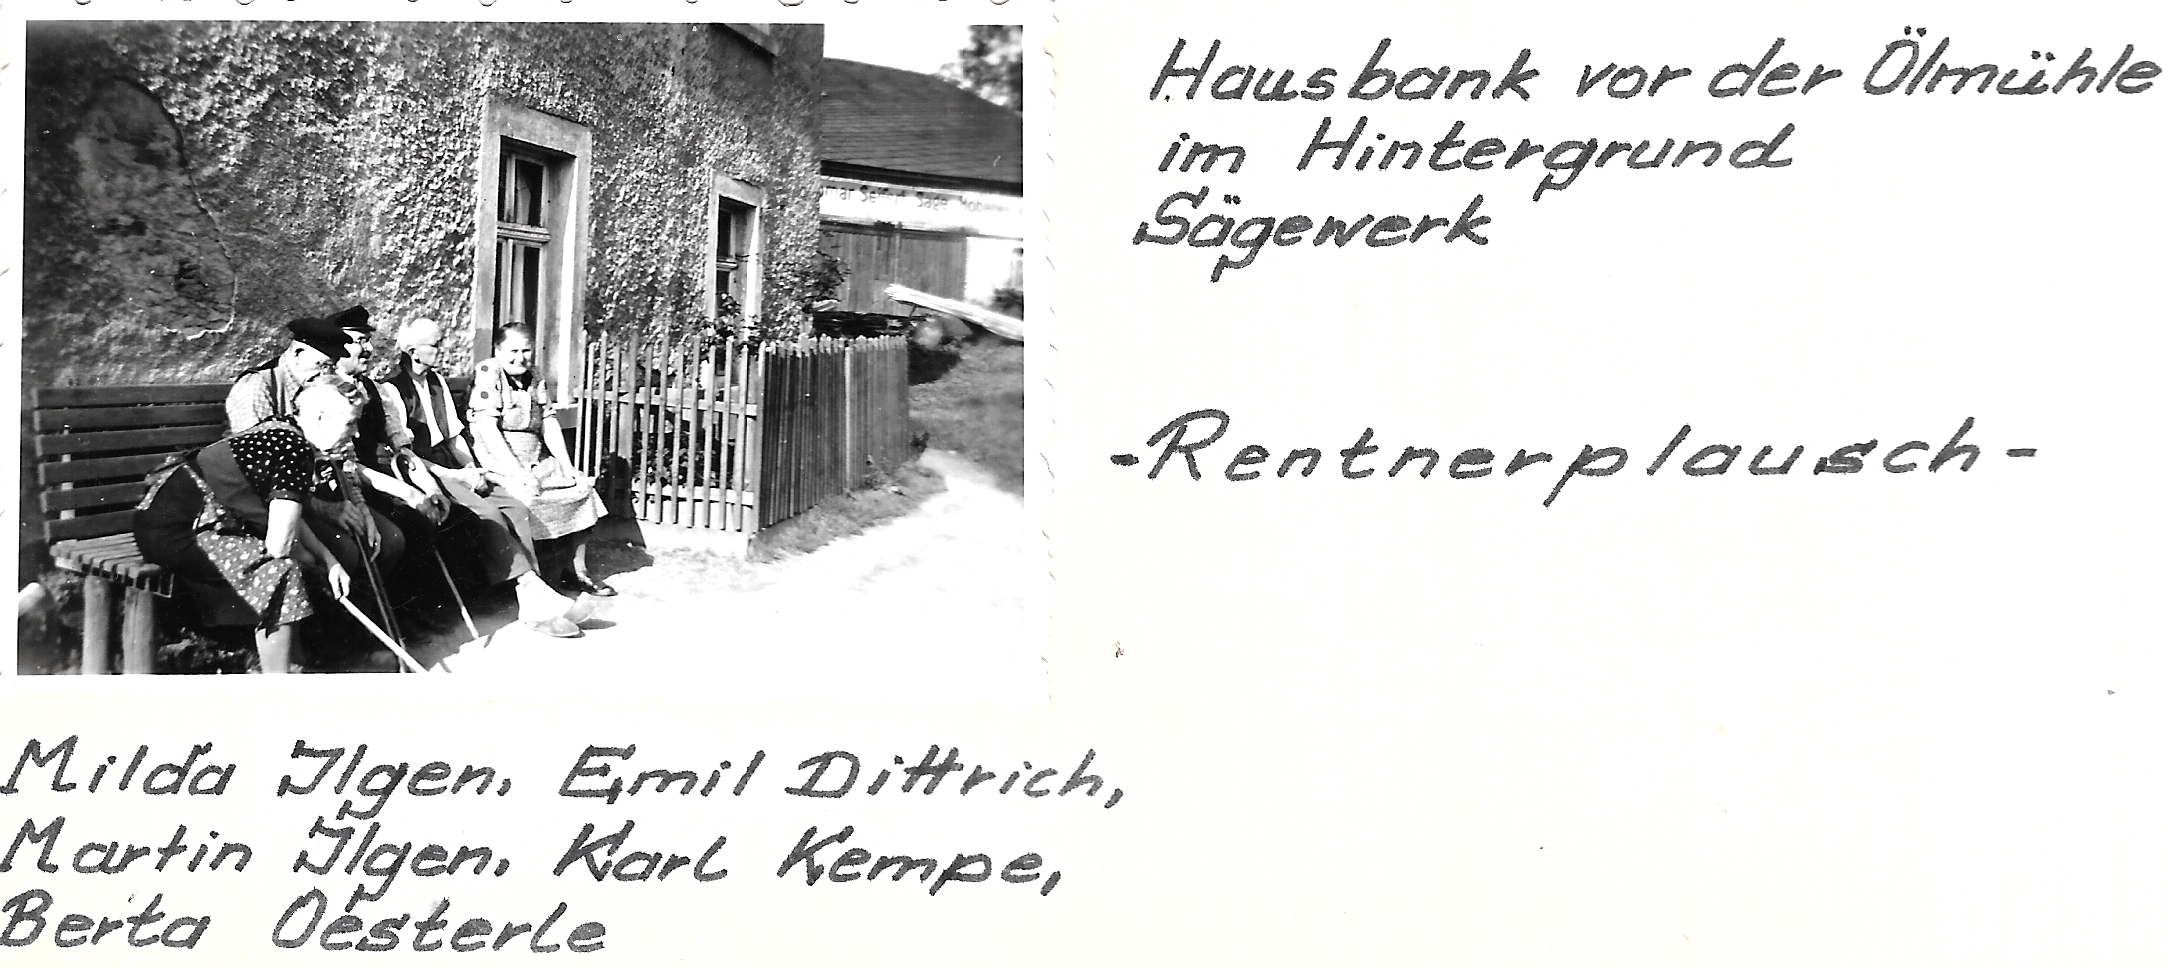 Hausbank vor der Ölmühle
im Hintergrund
Sägewerk
-Rentnerplausch-
mar Seifert Säge
Milda Ilgen, Emil Dittrich,
Martin Ilgen, Karl Kempe,
Berta Oesterle